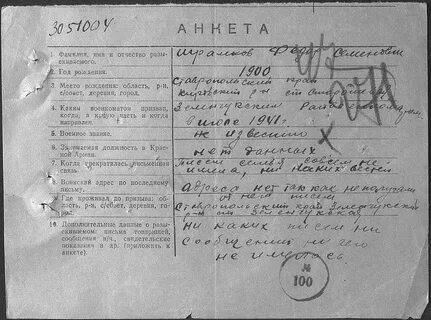 3051004
АНКЕТА
1. Фамилия, имя и отчество разыскиваемого.
Шрамков Федор Семенович
2. Год рождения.
1900
3. Место рождения: область, р-н, с/совет, деревня, город.
Ставропольский край
р-н ст
4. Каким военкоматом призван, когда, в какую часть и когда направлен.
Зеленчукский Райвоенкомат
в июле 1941 г
5. Военное звание.
не известно
6. Занимаемая должность в Красной Армии.
нет данных
7. Когда прекратилась письменная связь.
семья совсем не
имела, ни каких вестей
8. Воинский адрес по последнему письму.
адреса нет так как не получали
от него писем
9. Где проживал до призыва: область, р-н, с/совет, деревня, город.
Ставропольский край Зеленчукский
р-н ст Зеленчукская
10. Дополнительные данные о разыскиваемом письма товарищей, сообщения в/ч, свидетельские показания и др. (приложить к анкете).
ни каких писем ни
сообщений ни чего
не имелось
№
100